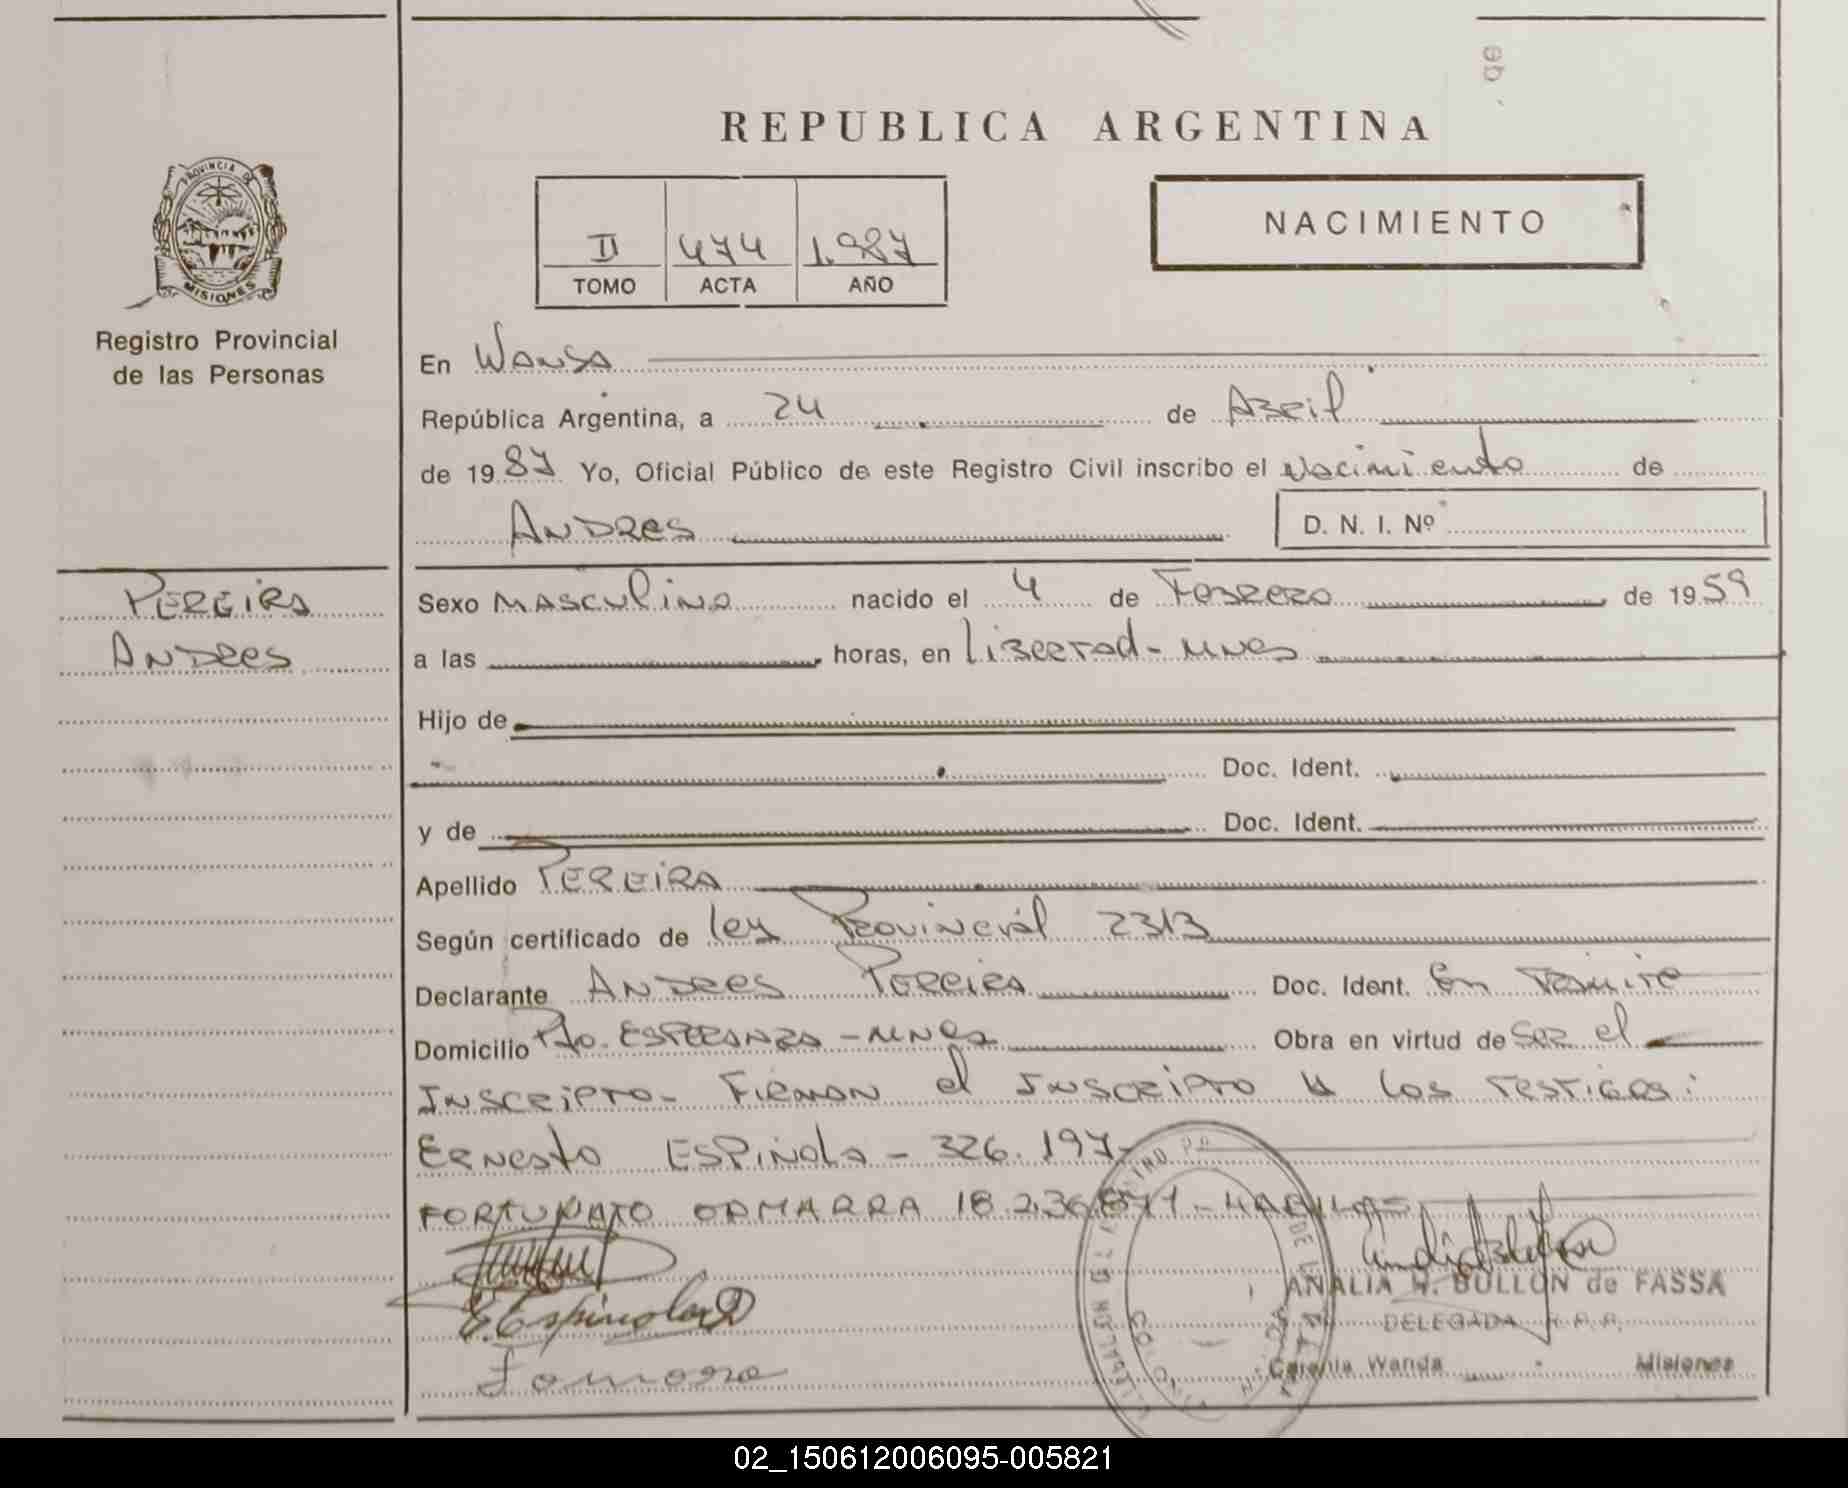 de
REPUBLICA ARGENTINA
PROVINCIA DE
MISIONES
Registro Provincial
de las Personas
II 474 1.987
TOMO ACTA AÑO
NACIMIENTO
En WANDA
República Argentina, a 24 de Abril
de 1987 Yo, Oficial Público de este Registro Civil inscribo el Nacimiento de
ANDRES D. N. I. Nº
PEREIRA
ANDRES
Sexo MASCULINO nacido el 4 de FEBRERO de 1959
a las horas, en Libertad - Mnes
Hijo de
Doc. Ident.
y de Doc. Ident.
Apellido PEREIRA
Según certificado de Ley Provincial 2313
Declarante ANDRES PEREIRA Doc. Ident. En Tramite
Domicilio Pto. ESPERANZA - Mnes Obra en virtud de ser el
INSCRIPTO - FIRMAN el INSCRIPTO y los TESTIGOS:
Ernesto ESPINOLA - 326.197-
FORTUNATO GAMARRA 18.236.871 - HABILES
E. Espinola
ANALIA H. BULLON de FASSA
DELEGADA R.P.P.
Colonia Wanda Misiones
02_150612006095-005821